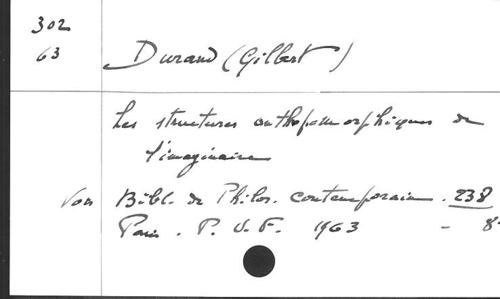 302
63 Durand (Gilbert)
Les structures anthropomorphiques de
l'imaginaire
Voir Bibl. de Philos. contemporaine. 238
Paris. P. U. F. 1963 - 8°